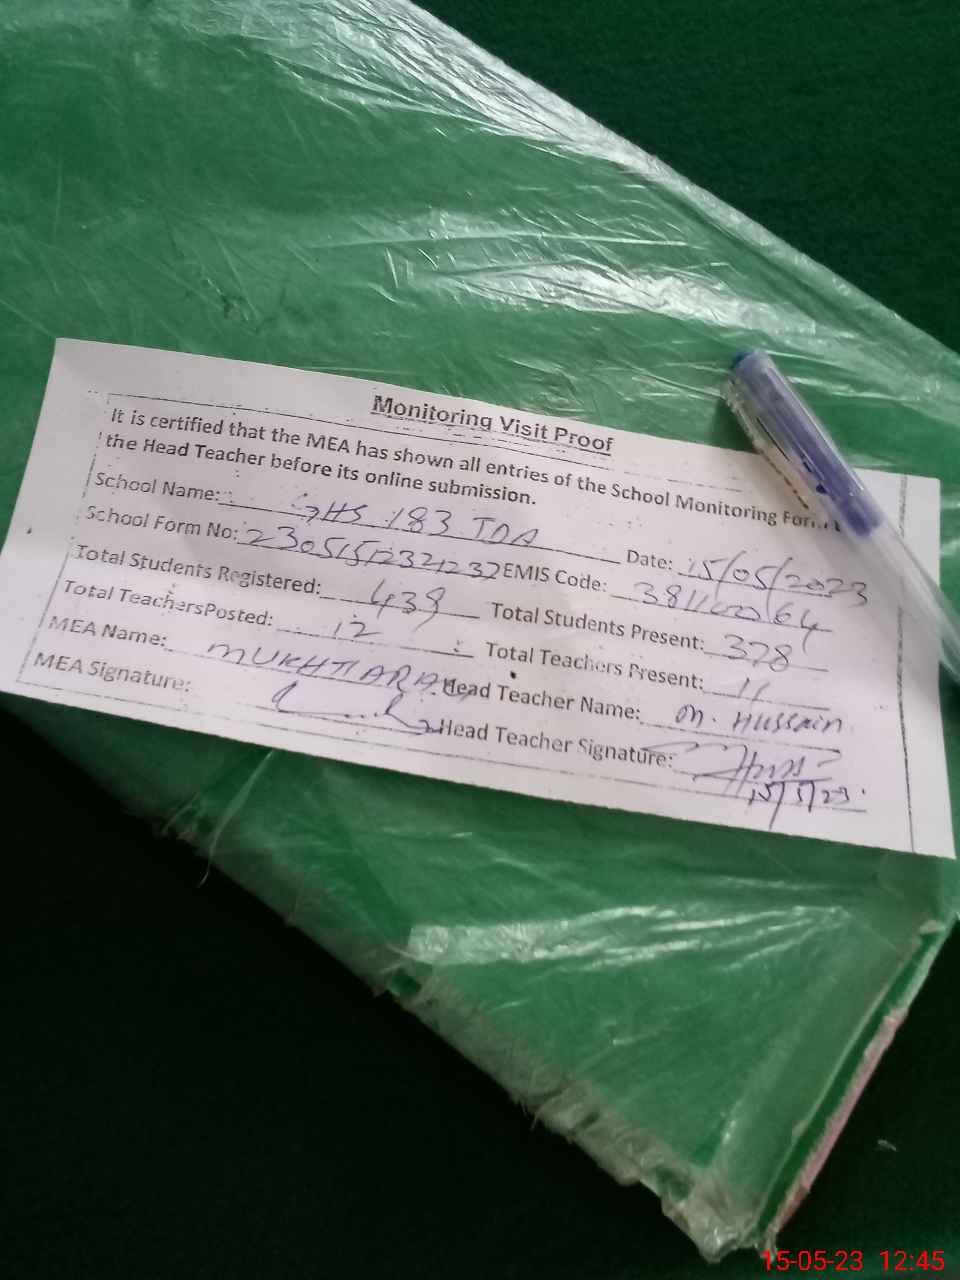 Monitoring Visit Proof
It is certified that the MEA has shown all entries of the School Monitoring Form t
the Head Teacher before its online submission.
School Name: GHS 183 TDA Date: 15/05/2023
School Form No: 230515123421232 EMIS Code: 38114
Total Students Registered: 439 Total Students Present: 378
Total TeachersPosted: 12 Total Teachers Present: 11
MEA Name: MUKHTIAR A Head Teacher Name: M. HUSSAIN
MEA Signature: Head Teacher Signature:
15/5/23
15-05-23 12:45